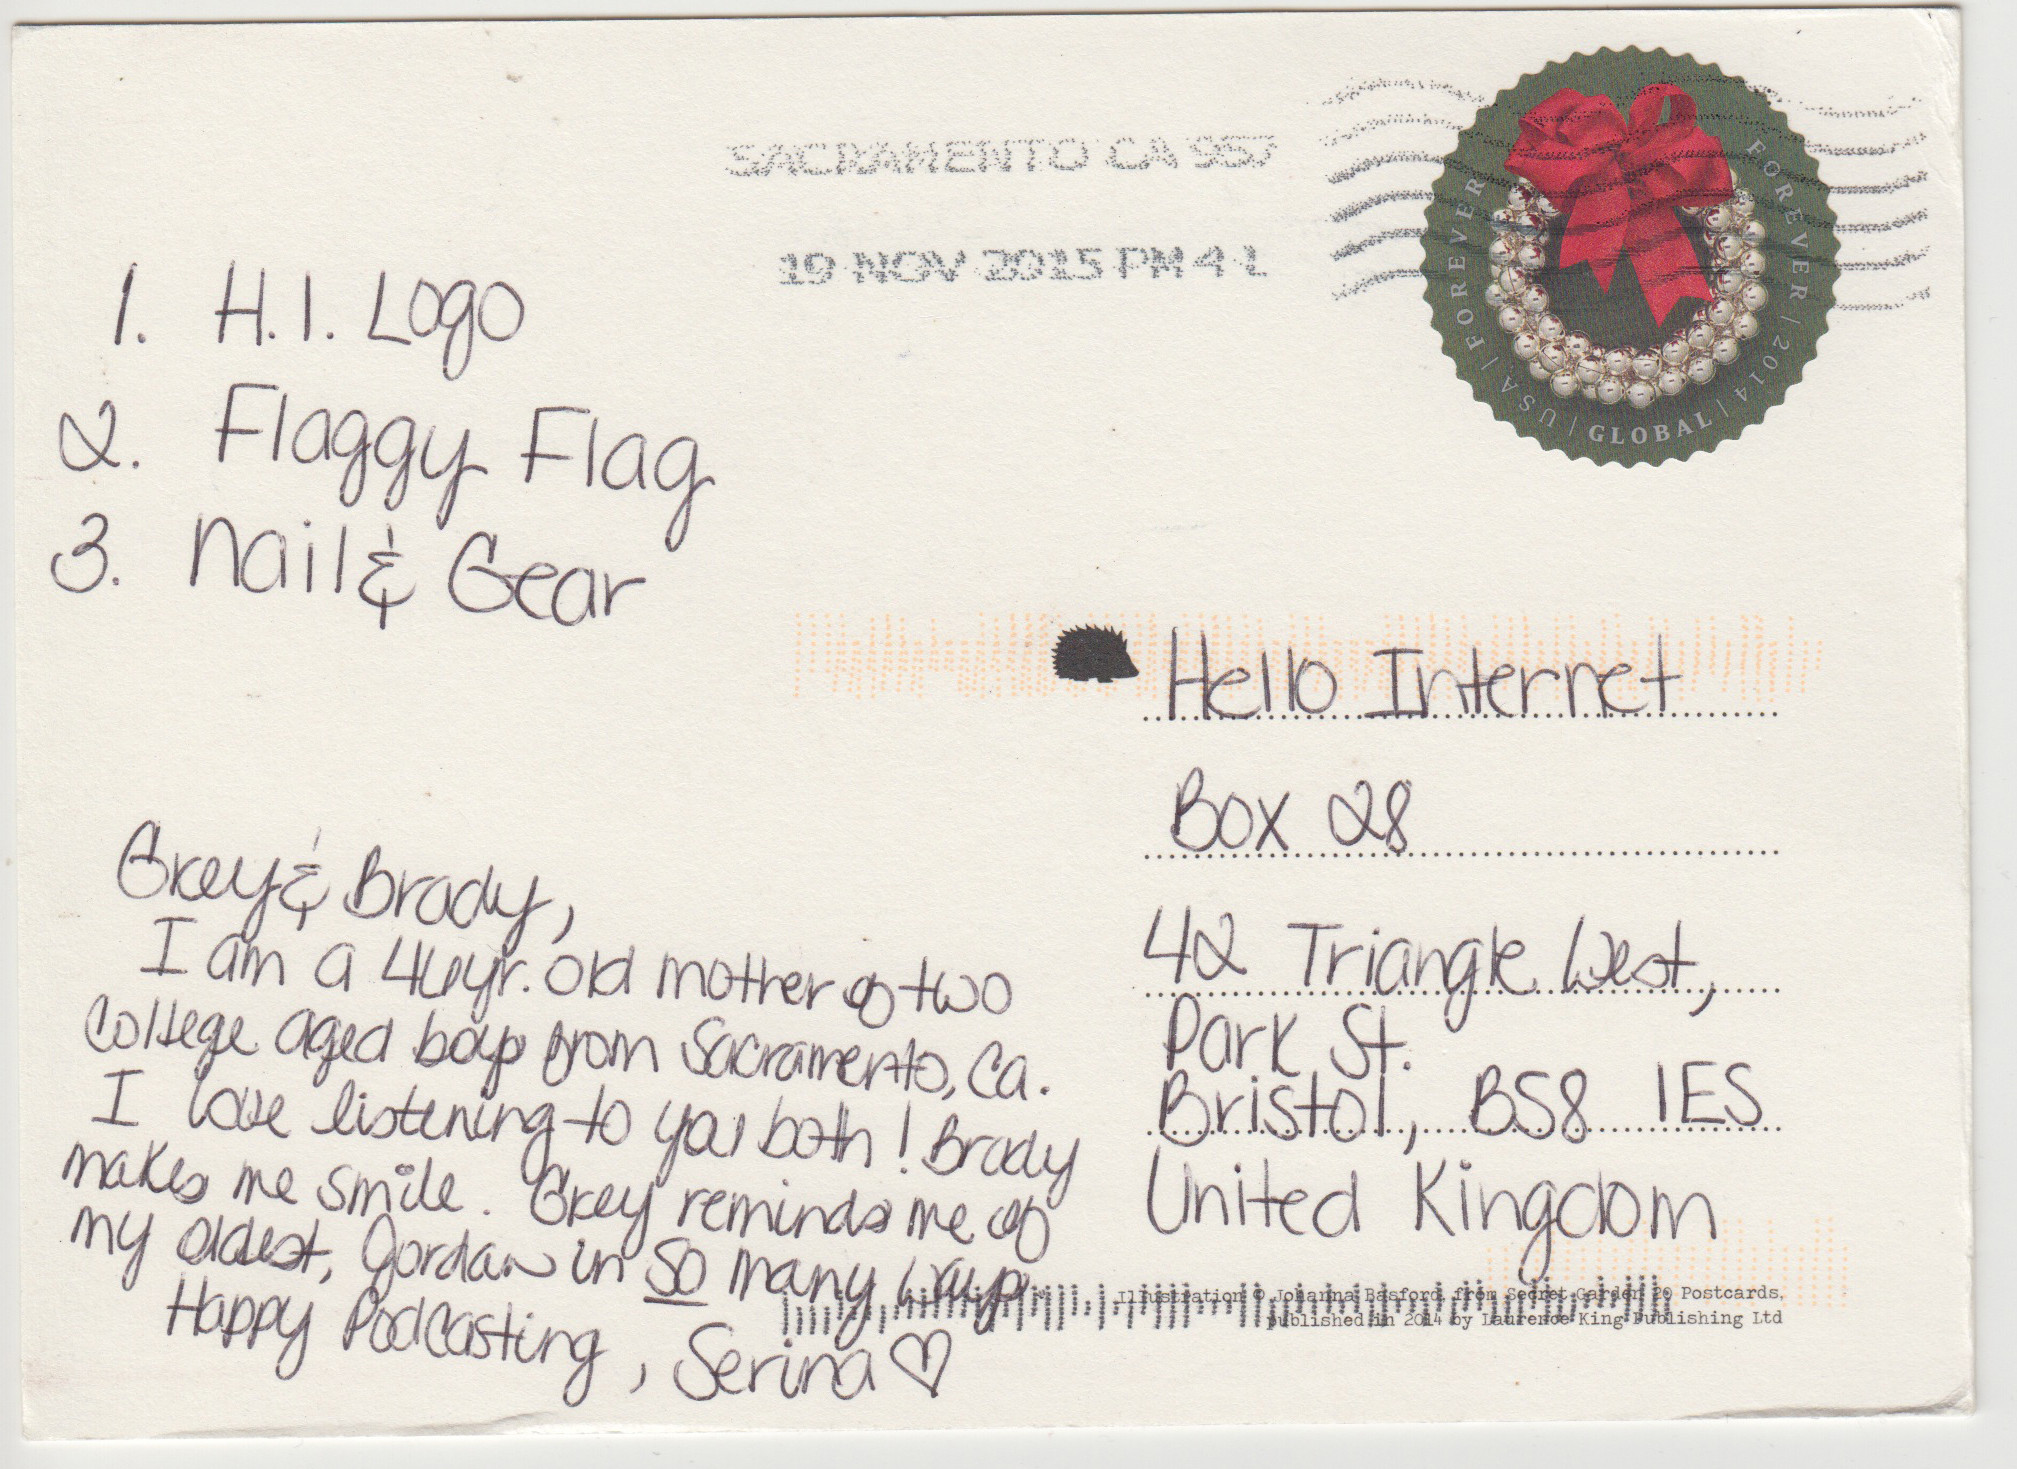 SACRAMENTO CA 957
19 NOV 2015 PM 4 L
FOREVER
FOREVER / 2014 / GLOBAL / USA /
1. H.I. Logo
2. Flaggy Flag
3. Nail & Gear
Hello Internet
Box 28
42 Triangle West,
Park St.
Bristol, BS8 1ES
United Kingdom
Grey & Brady,
I am a 46yr. old mother of two
college aged boys from Sacramento, Ca.
I love listening to you both! Brady
makes me smile. Grey reminds me of
my oldest, Jordan in so many ways.
Happy Podcasting, Serina ♡
Illustration © Johanna Basford, from Secret Garden 20 Postcards,
published in 2014 by Laurence King Publishing Ltd